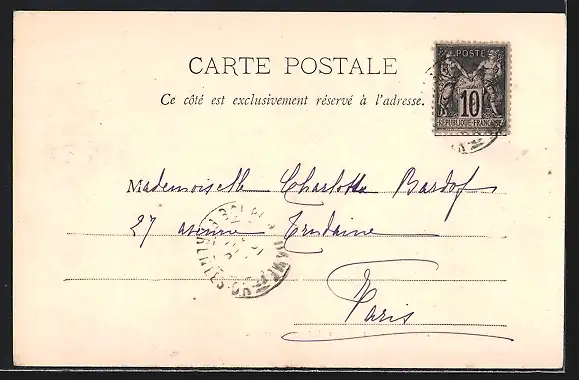 CARTE POSTALE
Ce côté est exclusivement réservé à l'adresse.
POSTE
10
REPUBLIQUE FRANÇAISE
Mademoiselle Charlotte Bardof
27 avenue Trudaine
Paris